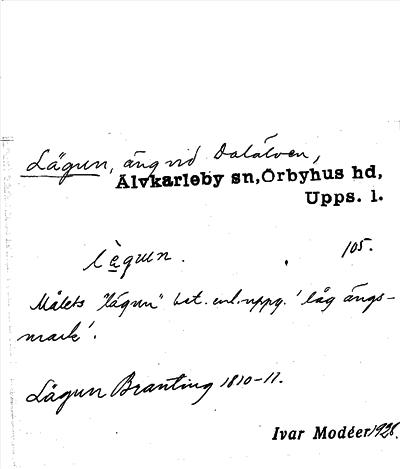 Lägun, äng vid Dalälven,
Älvkarleby sn, Örbyhus hd,
Upps. l.
lä̀gun. 105.
Målets "lägun" bet. enl. uppg. 'låg ängs-
mark'.
Lågun Branting 1810-11.
Ivar Modéer 1928.